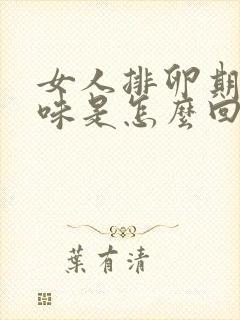 女人排卵期
味是怎麼回
葉有清